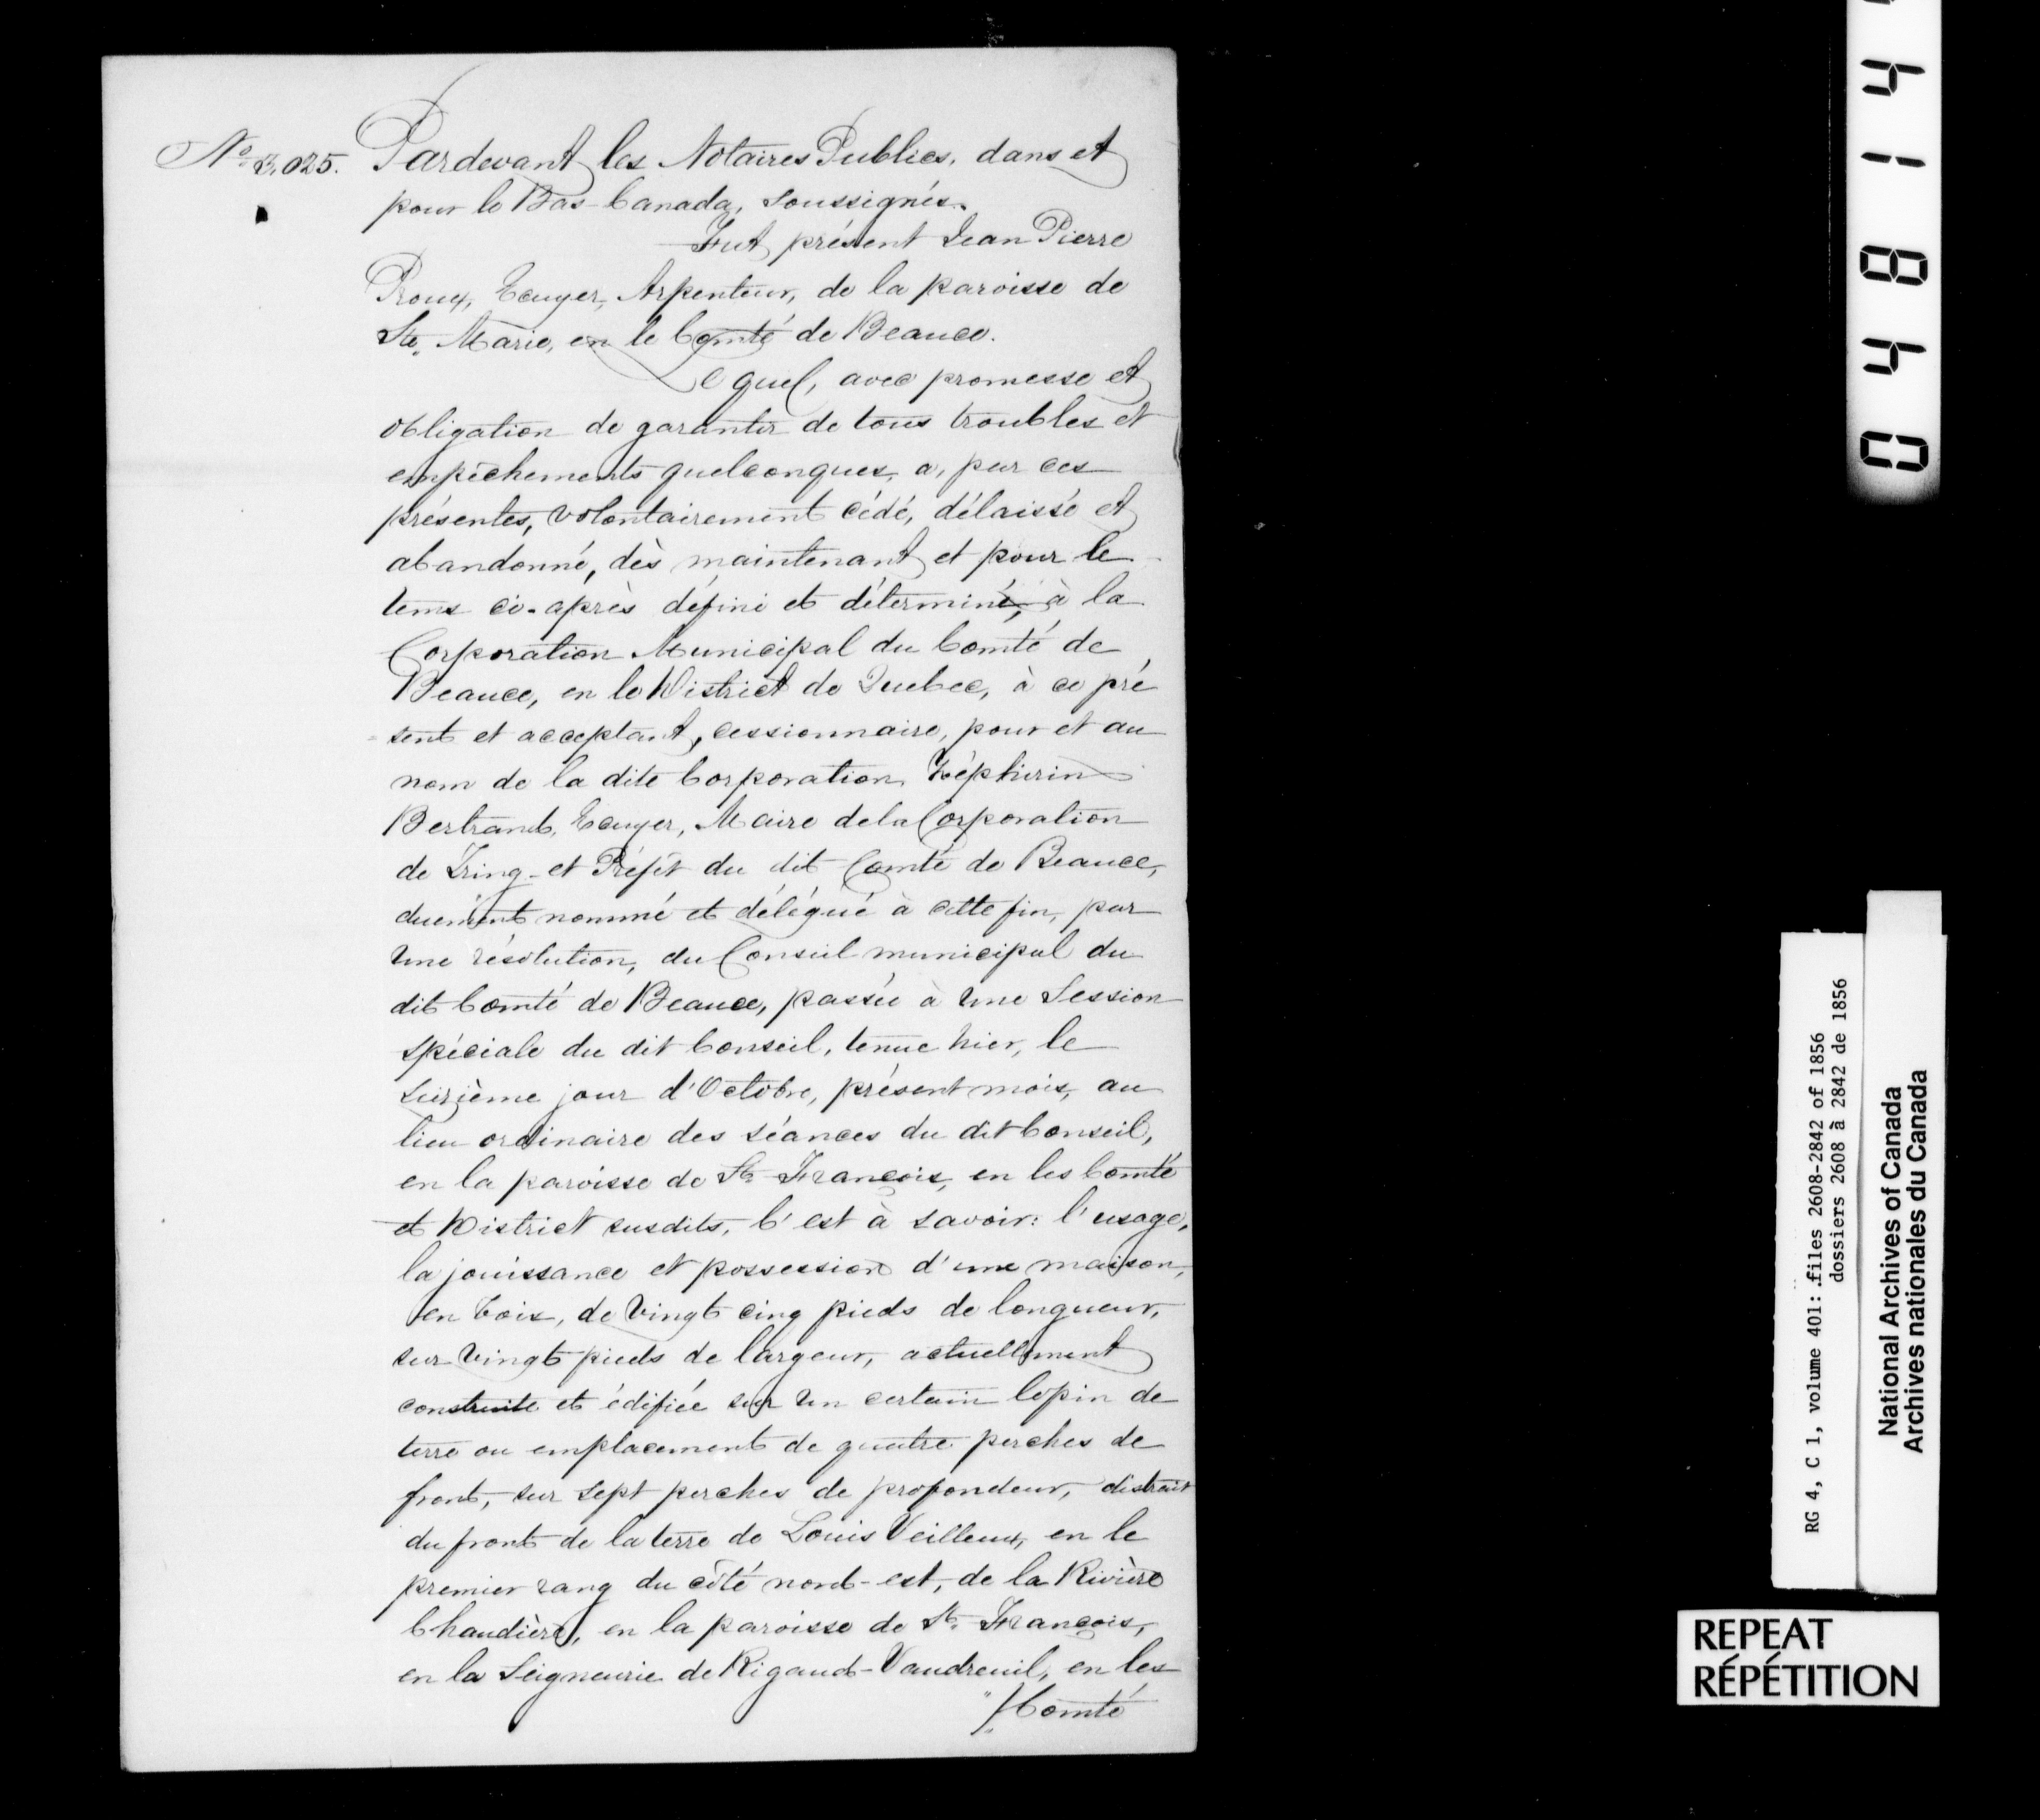 No. 3,025. Pardevant les Notaires Publics, dans et
pour le Bas-Canada, soussignés.
Fut présent Jean Pierre
Proux, Ecuyer, Arpenteur, de la paroisse de
Ste. Marie, en le Comté de Beauce.
Lequel, avec promesse et
obligation de garantir de tous troubles et
empêchements quelconques, a, par ces
présentes, volontairement cédé, délaissé et
abandonné, dès maintenant et pour le
tems ci-après défini et déterminé, à la
Corporation Municipal du Comté de
Beauce, en le District de Quebec, à ce pré
sent et acceptant, cessionnaire, pour et au
nom de la dite Corporation, Zéphirin
Bertrand, Ecuyer, Maire de la Corporation
de Tring et Préfêt du dit Comté de Beauce,
duement nommé et délégué à cette fin, par
une résolution, du Conseil municipal du
dit Comté de Beauce, passée à une Session
spéciale du dit Conseil, tenue hier, le
seizième jour d'Octobre, présent mois, au
lieu ordinaire des séances du dit Conseil,
en la paroisse de St. François, en les Comté
et District susdits, C'est à savoir: l'usage,
la jouissance et possession d'une maison,
en bois, de vingt cinq pieds de longueur,
sur vingt pieds de largeur, actuellement
construite et édifiée sur un certain lopin de
terre ou emplacement de quatre perches de
front, sur sept perches de profondeur, distrait
du front de la terre de Louis Veilleux, en le
premier rang du côté nord-est, de la Rivière
Chaudière, en la paroisse de St. François,
en la Seigneurie de Rigaud-Vaudreuil, en les
"/Comté
0 4 8 1 4
RG 4, C 1, volume 401: files 2608-2842 of 1856
dossiers 2608 à 2842 de 1856
National Archives of Canada
Archives nationales du Canada
REPEAT
RÉPÉTITION